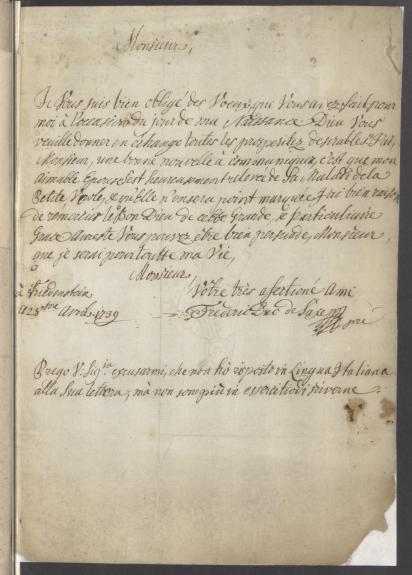 Monsieur,
Je Vous suis bien obligé des Voeux, que Vous avez fait pour
moi à l'occasion du jour de ma Naissance Dieu Vous
veuille donner en échange toutes les prosperitez desirables. J'ai,
Monsieur, une bonne nouvelle à communiquer, c'est que mon
aimable Epouse est heureusement relevée de Sa Maladie de la
Petite Verole, et qu'elle n'en sera point marquée J'ai bien raison
de remercier le Bon Dieu de cette Grande, et particuliere
Grace Au reste Vous pouvez être bien persuadé, Monsieur,
que je serai pour toutte ma Vie,
Monsieur
à Friedenstein
Vôtre très afectioné Ami
ce 28 Avril 1739
Frederic Duc de Saxe
Prego V. Sig.ia excusarmi, che non hò risposto in Lingua Italiana
alla Sua lettera, mà non son più in essercitio di scriverne